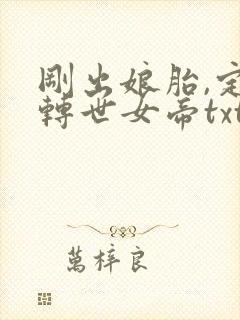 剛出娘胎,定
轉世女帝txt
萬梓良